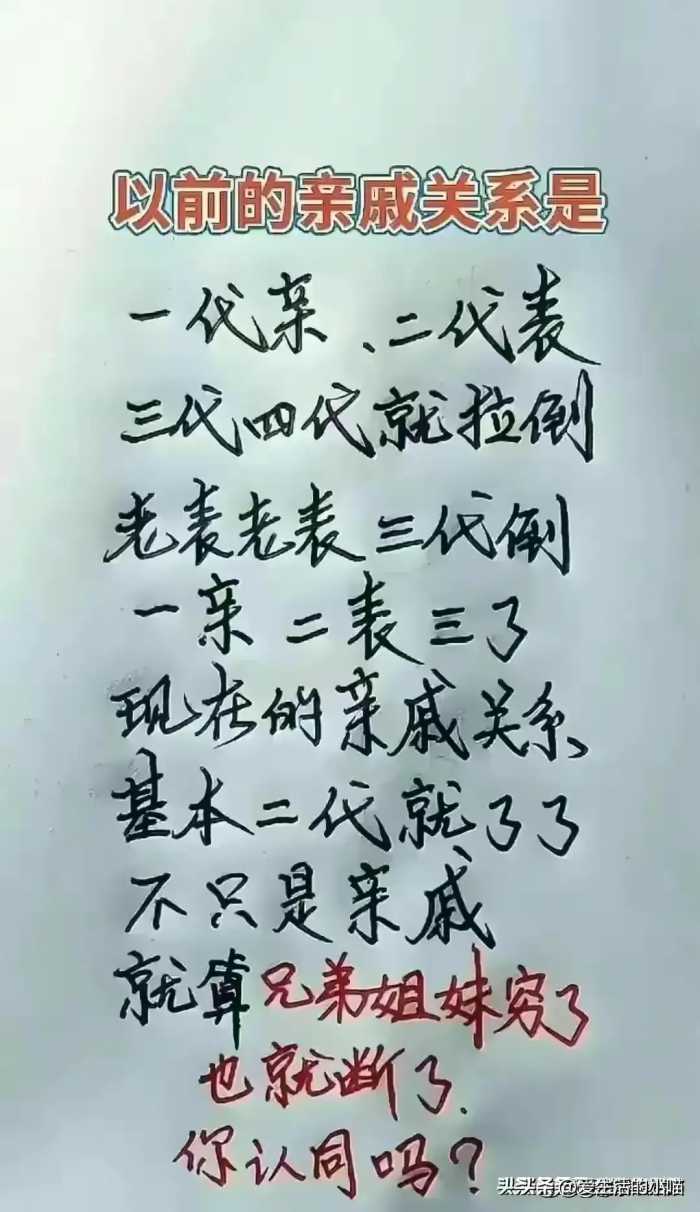 以前的亲戚关系是
一代亲、二代表
三代四代就拉倒
老表老表三代倒
一亲二表三了
现在的亲戚关系
基本二代就了了
不只是亲戚
就算兄弟姐妹穷了
也就断了.
你认同吗?
头条 @爱生活的小喵